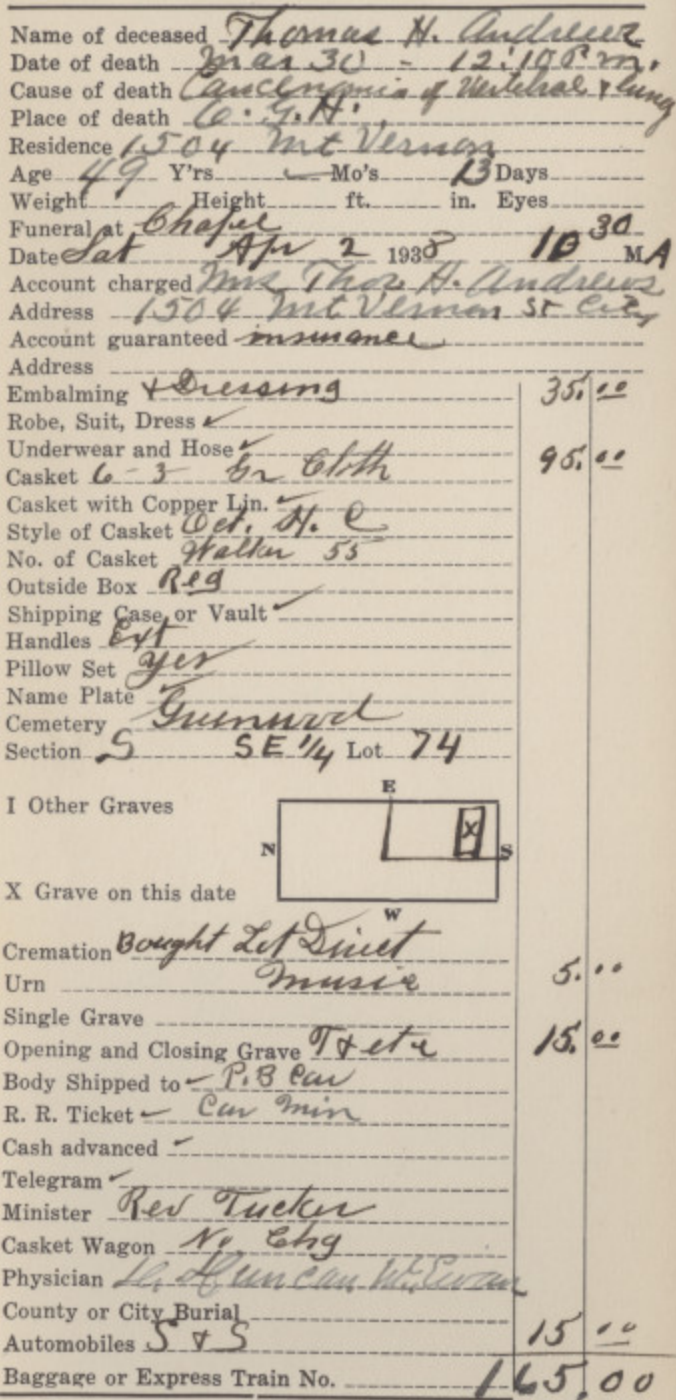 Name of deceased Thomas H. Andrews
Date of death Mar 30 - 12:10 P.m.
Cause of death Carcenomia of Vertebral & lung
Place of death O. G. H.
Residence 1504 Mt Vernon
Age 49 Y'rs Mo's 13 Days
Weight Height ft. in. Eyes
Funeral at Chapel
Date Sat Apr 2 1938 10 30 M A
Account charged Mrs Thos. H. Andrews
Address 1504 Mt Vernon St City
Account guaranteed insurance
Address
Embalming & Dressing 35.00
Robe, Suit, Dress ✓
Underwear and Hose ✓
Casket 6-3 Gr Cloth 95.00
Casket with Copper Lin. ✓
Style of Casket Oct. H. C
No. of Casket Walker 55
Outside Box Reg
Shipping Case or Vault ✓
Handles Ext
Pillow Set yes
Name Plate ✓
Cemetery Greenwood
Section S SE 1/4 Lot 74
E
I Other Graves
N X S
X Grave on this date
W
Cremation Bought Lot Direct
Urn Music 5.00
Single Grave
Opening and Closing Grave T & etc 15.00
Body Shipped to P.B Car
R. R. Ticket Car Min
Cash advanced
Telegram ✓
Minister Rev Tucker
Casket Wagon No Chg
Physician Duncan McEwan
County or City Burial
Automobiles S & S 15 00
Baggage or Express Train No. 165.00